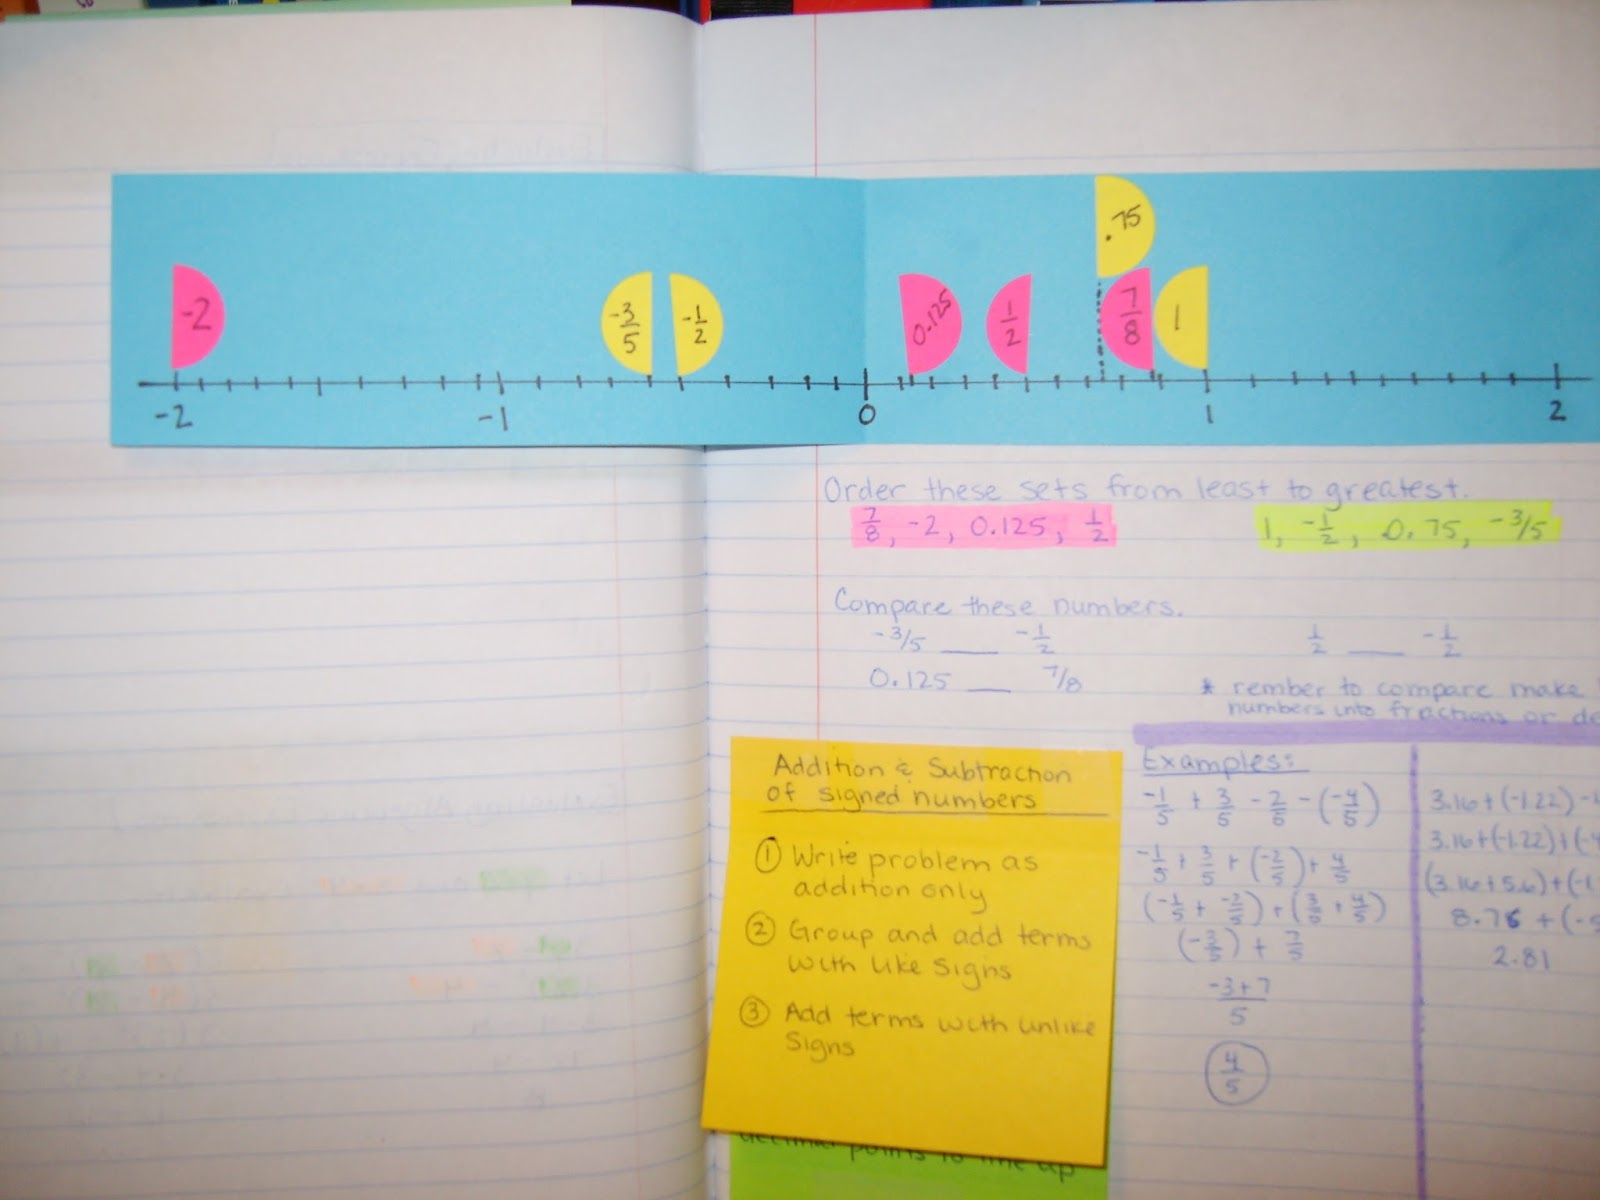 .75
-2
-3/5
-1/2
0.125
1/2
7/8
1
-2 -1 0 1 2
Order these sets from least to greatest.
7/8, -2, 0.125, 1/2
1, -1/2, 0.75, -3/5
Compare these numbers.
-3/5 ___ -1/2
1/2 ___ -1/2
0.125 ___ 7/8
* rember to compare make
numbers into fractions or de
Addition & Subtraction
of signed numbers
① Write problem as
addition only
② Group and add terms
with like signs
③ Add terms with unlike
signs
Examples:
-1/5 + 3/5 - 2/5 - (-4/5)
-1/5 + 3/5 + (-2/5) + 4/5
(-1/5 + -2/5) + (3/5 + 4/5)
(-3/5) + 7/5
-3+7/5
4/5
3.16+(-1.22)-
3.16+(-1.22)+(-
(3.16+5.6)+(-1
8.76 + (-5
2.81
decimal points to line up